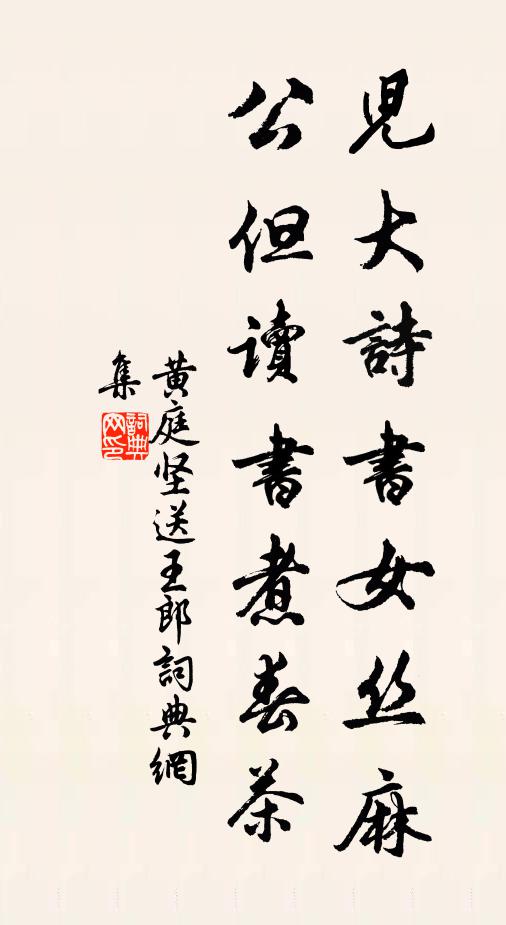 兒大詩書女丝麻
公但讀書煮春茶
黄庭坚送王郎詞典網
集
詞典网印